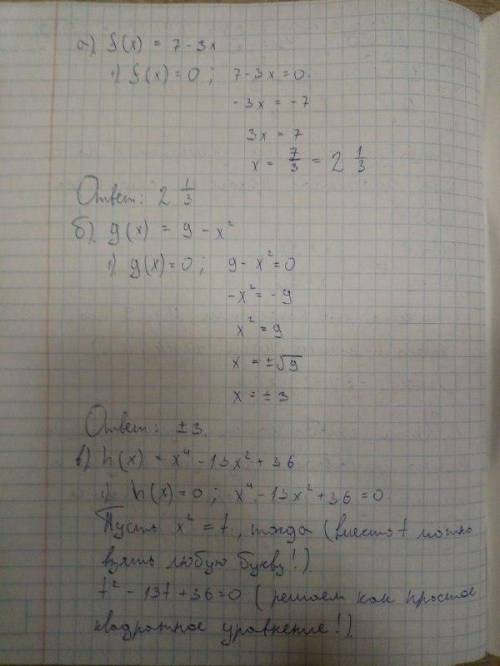 а) f(x) = 7 - 3x
1) f(x) = 0 ; 7 - 3x = 0
-3x = -7
3x = 7
x = 7/3 = 2 1/3
Ответ: 2 1/3
б) g(x) = 9 - x²
1) g(x) = 0 ; 9 - x² = 0
-x² = -9
x² = 9
x = ±√9
x = ±3
Ответ: ±3.
в) h(x) = x⁴ - 13x² + 36
1) h(x) = 0 ; x⁴ - 13x² + 36 = 0
Пусть x² = t, тогда (вместо t можно
взять любую букву!)
t² - 13t + 36 = 0 (решаем как простое
квадратное уравнение!)